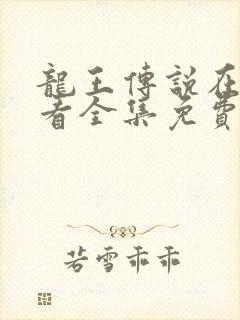 龍王傳說在
看全集免費
若雪乖乖